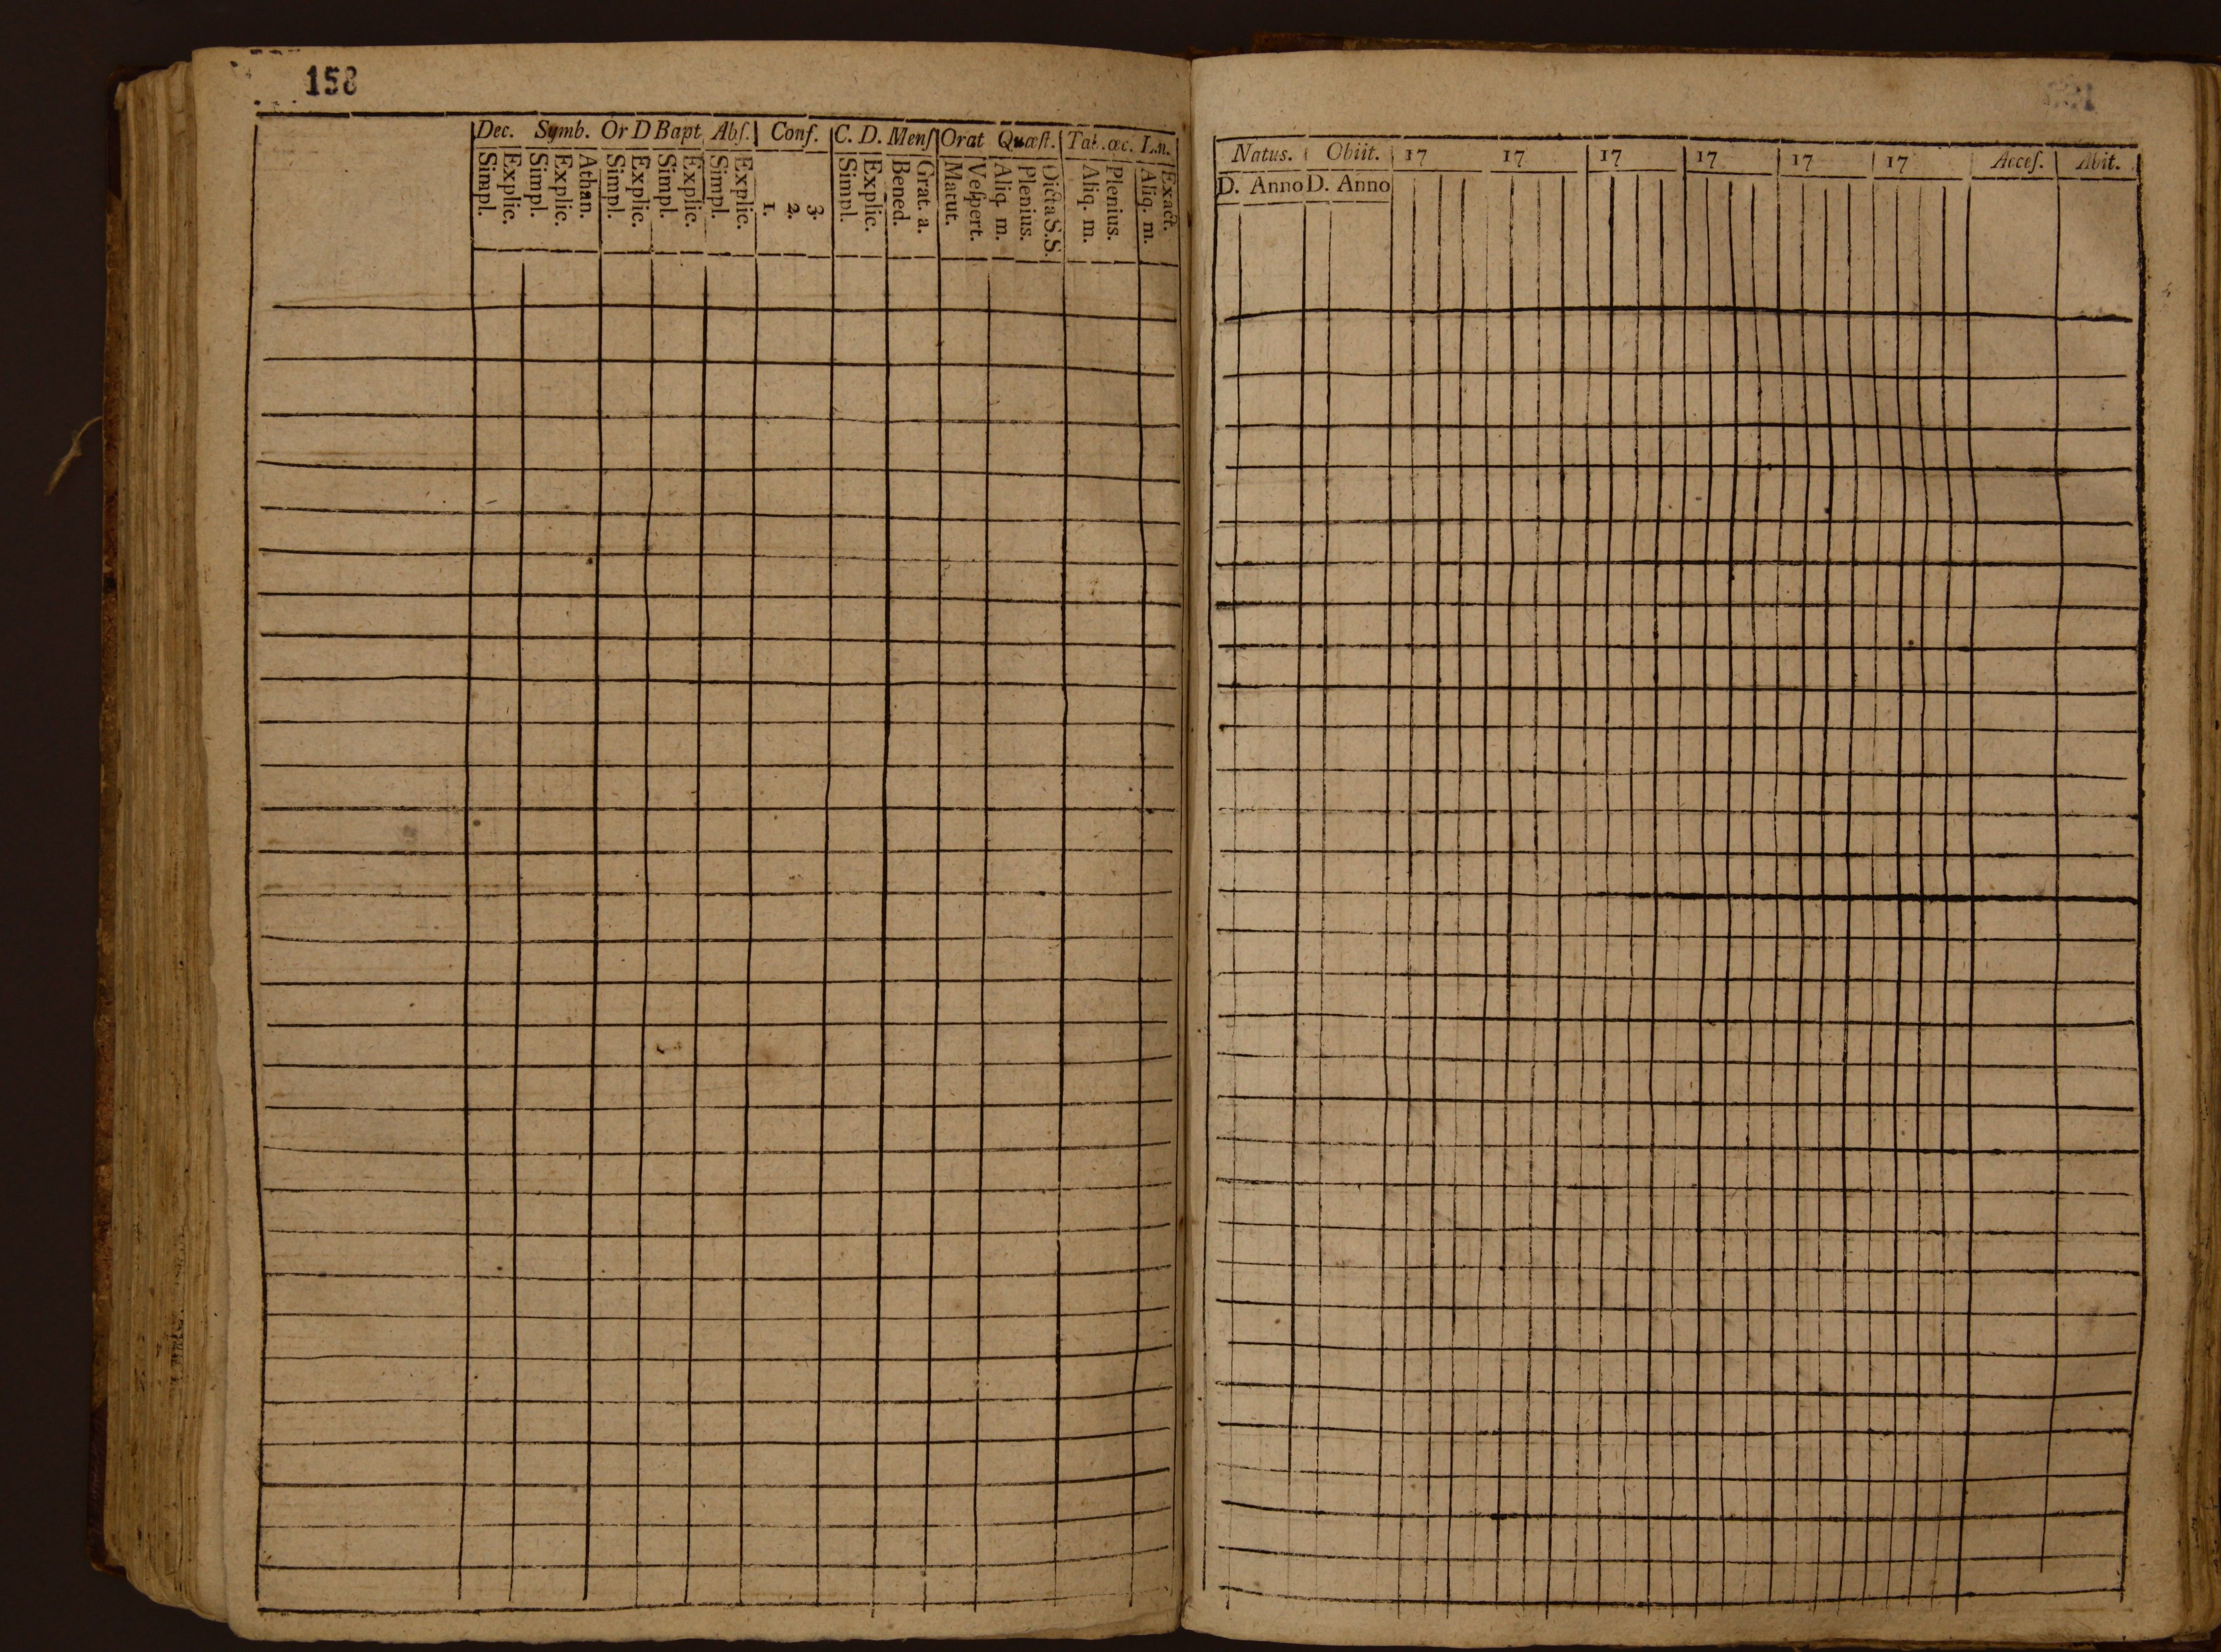 158
Dec. Symb. Or D Bapt. Abſ. Conf. C. D. Menſ Orat Quæſt. Tab. œc. L.n.
Simpl. Explic. Simpl. Explic. Athan. Simpl. Explic. Simpl. Explic. Simpl. Explic. 1. 2. 3. Simpl. Explic. Bened. Grat. a. Matut. Veſpert. Aliq. m. Plenius. Dicta S.S. Aliq. m. Plenius. Aliq. m. Exact.
Natus. Obiit. 17 17 17 17 17 17 Acceſ. Abit.
D. Anno D. Anno